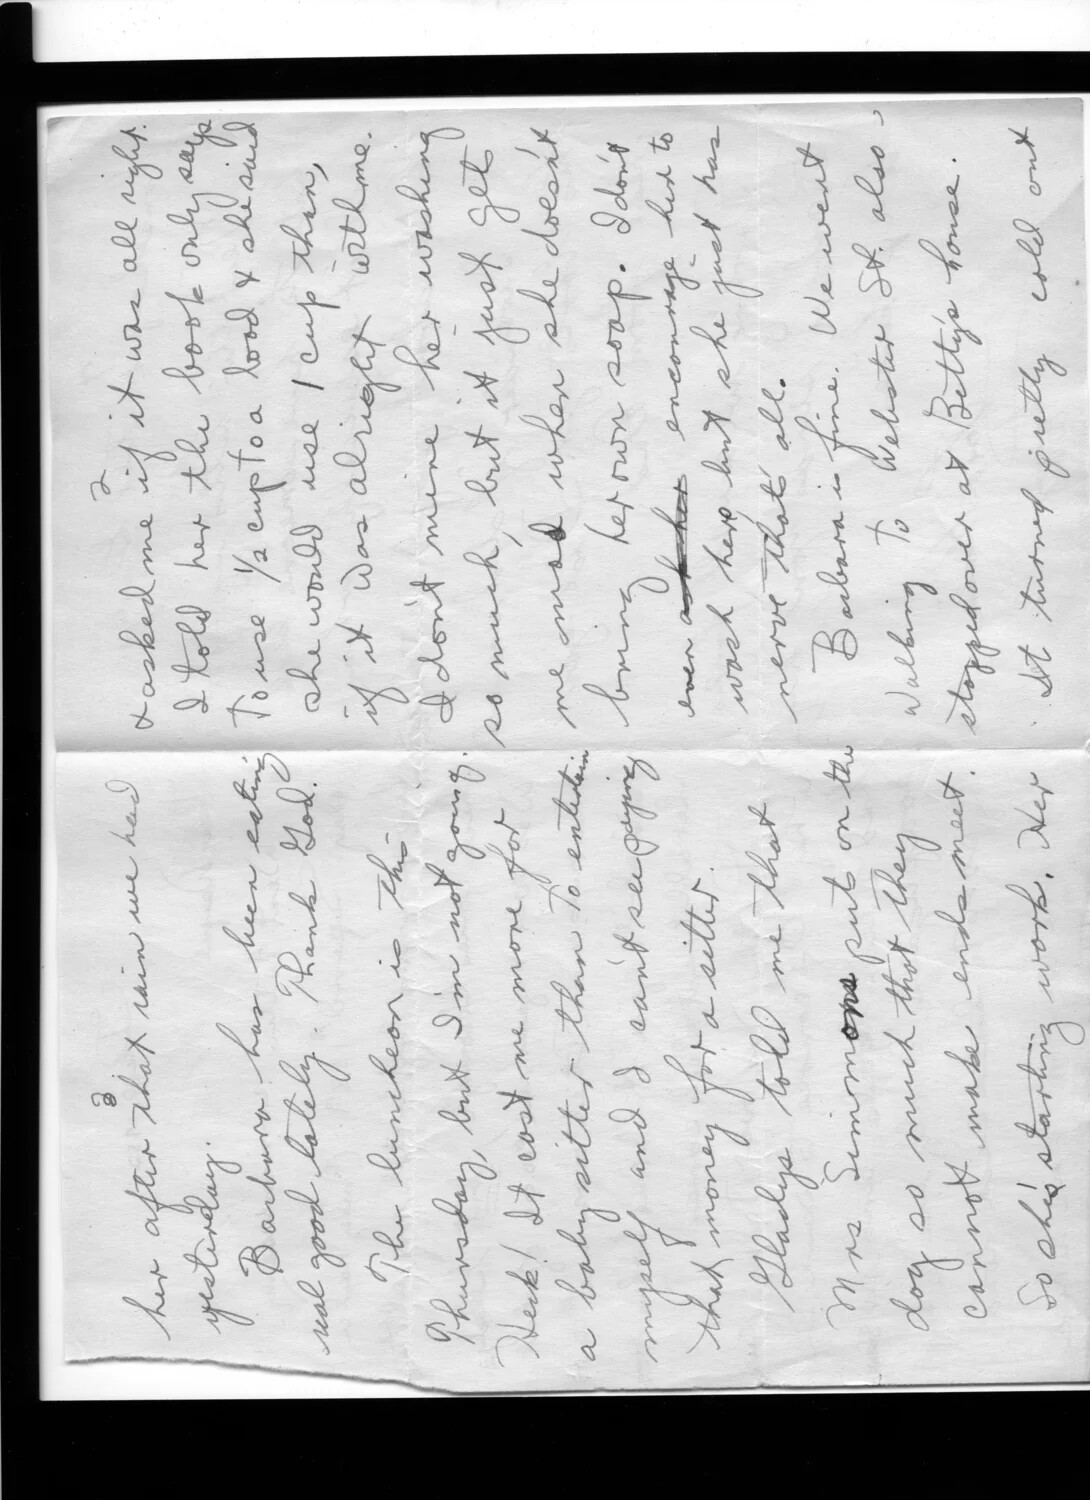 2
& asked me if it was all right.
I told her the book only says
to use 1/2 cup to a load & she said
she would use 1 cup then,
if it was alright with me.
I don't mine her washing
so much, but it just gets
me mad when she doesn't
bring her own soap. I don't
even encourage her to
wash here but she just has
nerve that's all.
Barbara is fine. We went
walking to Webster St. also
stopped over at Betty's house.
It turned pretty cold out
3
her after that rain we had
yesterday.
Barbara has been eating
real good lately. Thank God.
The luncheon is this
Thursday, but I'm not going.
Heck! It cost me more for
a baby sitter than to entertain
myself and I can't see paying
that money for a sitter.
Gladys told me that
Mrs Simmons puts on the
dog so much that they
cannot make ends meet.
So she's starting work. Her